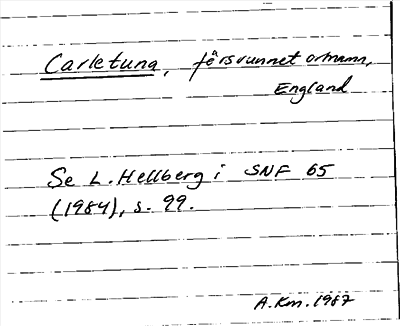 Carletuna, försvunnet ortnamn,
England
Se L. Hellberg i SNF 65
(1984), s. 99.
A.Km. 1987